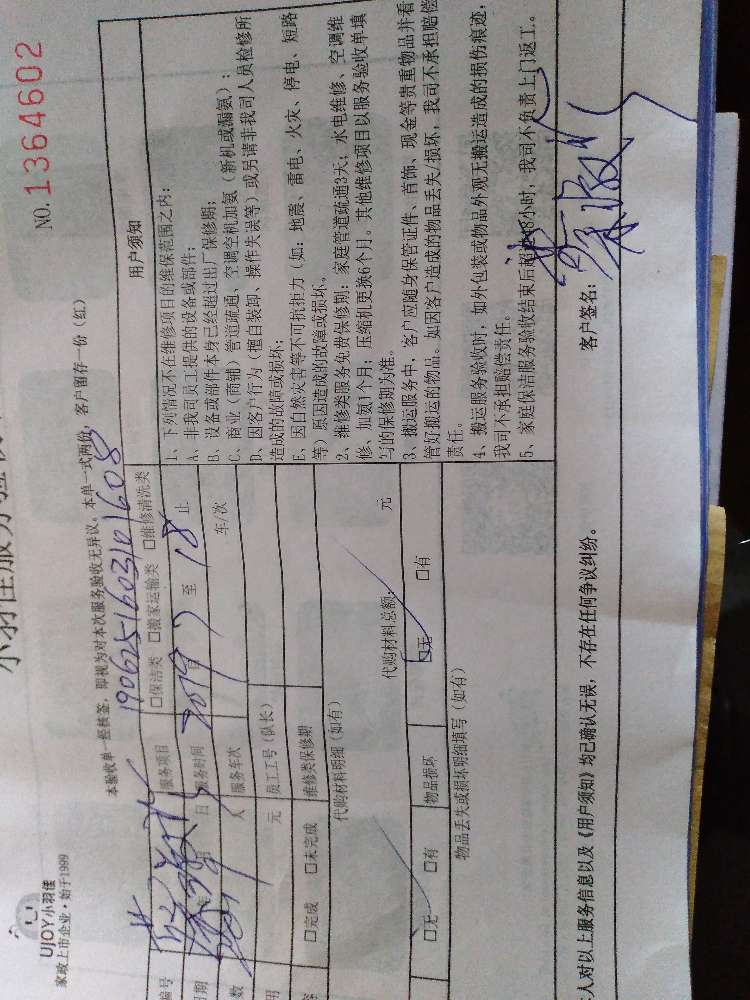 NO.1364602
UJOY小羽佳
家政上市企业·始于1999
本验收单一经核签，即视为对本次服务验收无异议。本单一式两份，客户留存一份（红）
190625160310101608
服务项目 □保洁类 □搬家运输类 □维修清洗类
日 服务时间 2019 7 至 18 止
人 服务车次 车/次
元 员工工号(队长)
□完成 □未完成 维修类保修期
代购材料明细(如有) 代购材料总额: 元
□无 □有 物品损坏 □无 □有
物品丢失或损坏明细填写(如有)
用户须知
1、下列情况不在维修项目的维保范围之内：
A、非我司员工提供的设备或部件；
B、设备或部件本身已经超过出厂保修期；
C、商业（商铺）管道疏通、空调空机加氨（新机或漏氨）；
D、因客户行为（擅自装卸、操作失误等）或另请非我司人员检修所
造成的故障或损坏；
E、因自然灾害等不可抗拒力（如：地震、雷电、火灾、停电、短路
等）原因造成的故障或损坏。
2、维修类服务免费保修期：家庭管道疏通3天；水电维修、空调维
修、加氨1个月；压缩机更换6个月。其他维修项目以服务验收单填
写的保修期为准。
3、搬运服务中，客户应随身保管证件、首饰、现金等贵重物品并看
管好搬运的物品。如因客户造成的物品丢失/损坏，我司不承担赔偿
责任。
4、搬运服务验收时，如外包装或物品外观无搬运造成的损伤痕迹，
我司不承担赔偿责任。
5、家庭保洁服务验收结束后超过48小时，我司不负责上门返工。
人对以上服务信息以及《用户须知》均已确认无误，不存在任何争议纠纷。 客户签名: